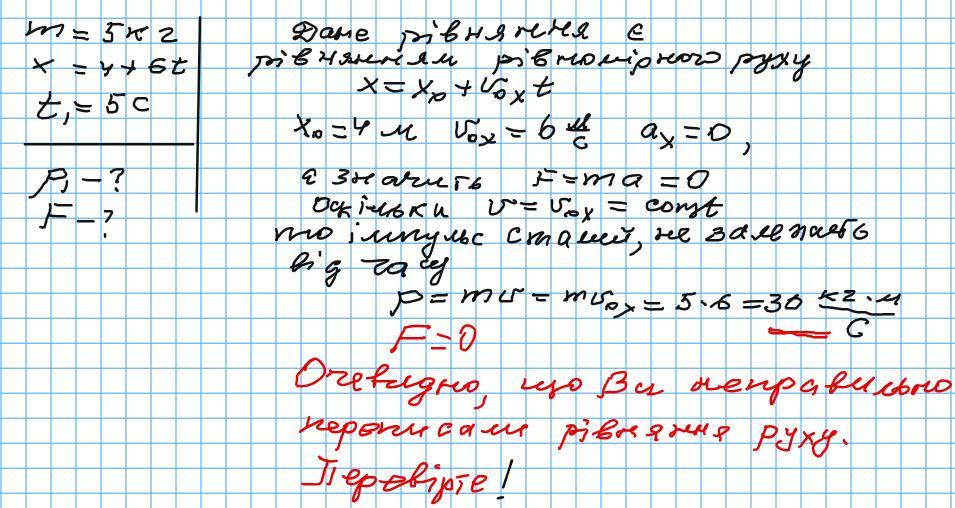 m = 5 кг
x = 4 + 6t
t₁ = 5 с
p₁ - ?
F - ?
Дане рівняння є
рівнянням рівномірного руху
x = x₀ + v₀ₓ t
x₀ = 4 м v₀ₓ = 6 м/с aₓ = 0,
а значить F = ma = 0
оскільки v = v₀ₓ = const
то імпульс сталий, не залежить
від часу
p = mv = mv₀ₓ = 5·6 = 30 кг·м/с
F = 0
Очевидно, що Ви неправильно
переписали рівняння руху.
Перевірте!